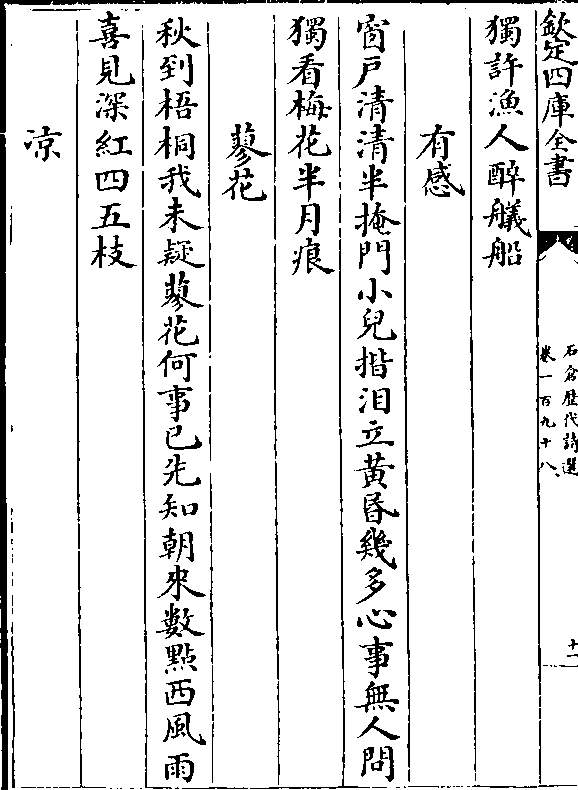 欽定四庫全書
石倉歷代詩選
卷一百九十八
十一
獨許漁人醉艤船
有感
窗戶清清半掩門小兒揩泪立黄昏幾多心事無人問
獨看梅花半月痕
蓼花
秋到梧桐我未疑蓼花何事已先知朝來數點西風雨
喜見深紅四五枝
凉